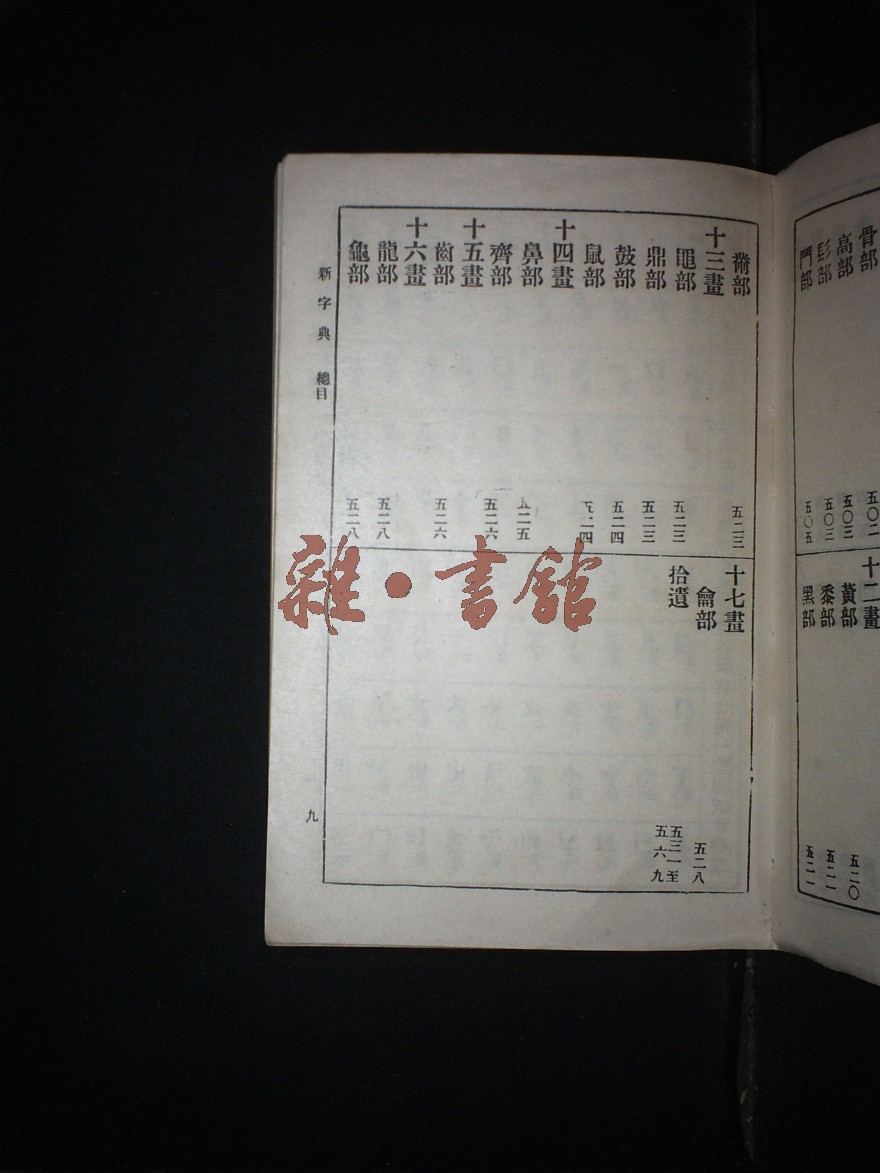 骨部 五〇二
高部 五〇三
髟部 五〇三
鬥部 五〇五
十二畫
黃部 五二〇
黍部 五二一
黑部 五二一
黹部 五二三
十三畫
黽部 五二三
鼎部 五二三
鼓部 五二四
鼠部 五二四
十四畫
鼻部 五二五
齊部 五二六
十五畫
齒部 五二六
十六畫
龍部 五二八
龜部 五二八
十七畫
龠部 五二八
拾遺 五三一至五六九
新字典 總目
九
雜·書館